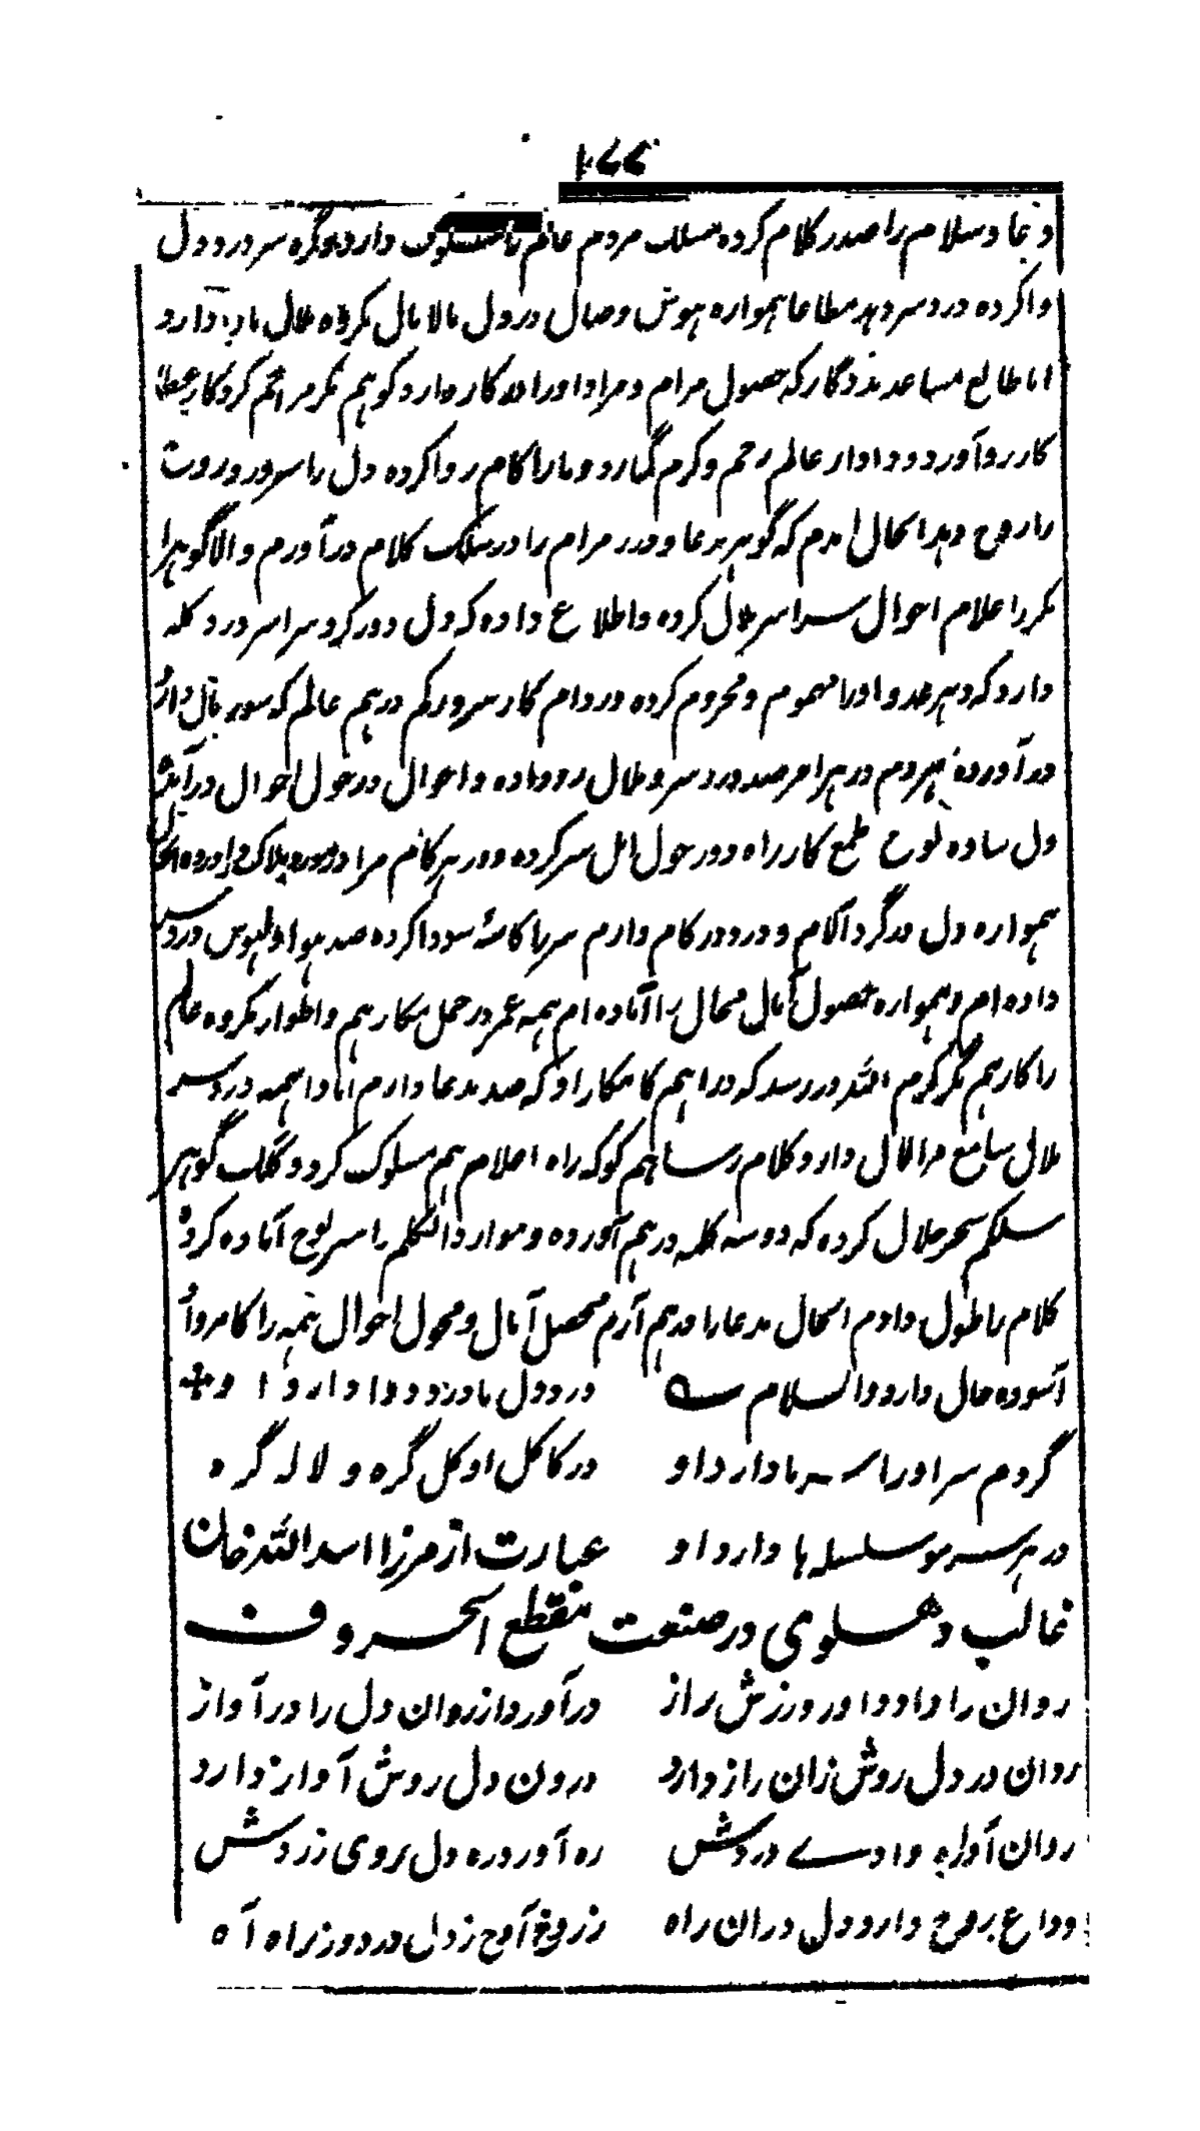 ۱۰۷۷
دعا و سلام را صدر کلام کرده مسلک مردم عالم را مسلوک دارد گره سر درد دل
وا کرده درد سر دهد مطاعا همواره هوش وصال در دل مالامال کرده ملال ما دارد
اما طالع مساعد مددگار که حصول مرام و مراد او را مددگار دارد کو هم مگر مراحم کردگار عطا
کار رو آورد و دادار عالم رحم و کرم گمارد و ما را کام روا کرده دل را سرور و روح
را روح دهد الحال آمدم که گوهر مدعا و درر مرام را در سلک کلام درآورم و الا گوهرا
مکرر اعلام احوال سراسر ملال کرده و اطلاع داده که دل دور کرد سراسر درد گله
دارد که دهر عدو او را مهموم و محروم کرده در دام کار سرور کم درهم عالم که سور مآل دارد
درآورده هر دم در هر امر صد درد سر و ملال رو داده و احوال در حول احوال درآمده
دل ساده لوح طمع کار راه دور حول امل سر کرده و در هر کام مرا در ورطه هلاک درآورده
همواره دل مدگرد آلام و درد در کام دارم سر را کاسۀ سودا کرده صد هوا و هوس در سر
داده ام و همواره حصول آمال محال را آماده ام همه عمر در حمل مکارهم و اطوار مکروه عالم
را کارهم مگر کرم الله در رسد که در راهم کامکار او که صد مدعا دارم اما واهمه درد سر
ملال سامع مرا لال دارد کلام رسا هم کو که راه اعلام هم مسلوک کردد کلک گوهر
سلکم سحر حلال کرده که دو سه کلمه درهم آورده و موارد الکلم را سر لوح آماده کرد
کلام را طول دادم الحال مدعا را درهم آرم محصل آمال و محول احوال همه را کامروا
آسوده حال دارد والسلام    درد دل ما درد دوا دارد او
گردم سر او را سر ما دارد او    در کاکل او گل گره و لاله گره
در هر سر مو سلسله ها دارد او    عبارت از مرزا اسد الله خان
غالب دهلوی در صنعت منقطع الحروف
روان را داد داور ورزش راز    درآورد از روان دل را در آواز
روان در دل روش زان راز دارد    درون دل روش آواز دارد
روان آواره وادے دردش    ره آورد ره دل روی زردش
وداع روح دارد دل دران راه    ز روح آوح ز دل درد و ز راه آه